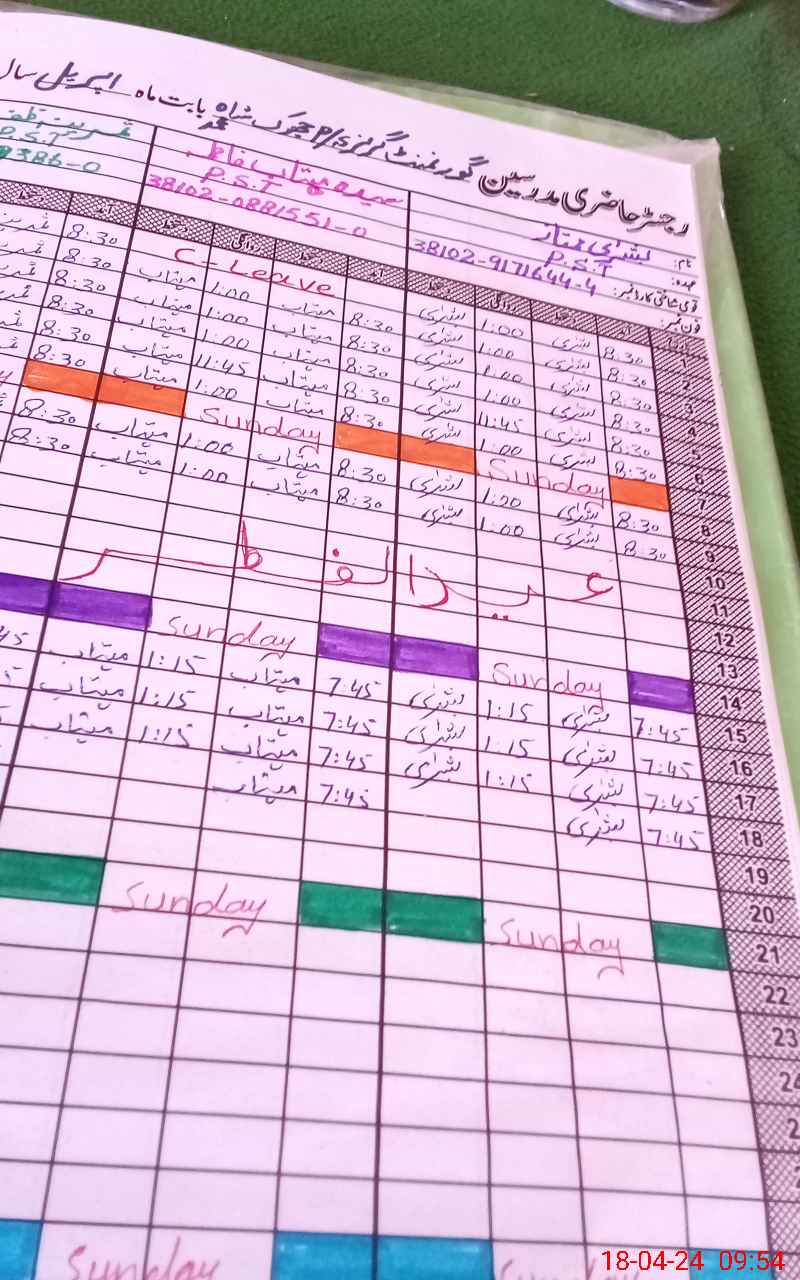 رجسٹر حاضری مدرسین گورنمنٹ گرلز P/S جھوک شاہ بابت ماہ اپریل سال
نام: بشریٰ ممتاز سیدہ مہتاب فاطمہ
عہدہ: P.S.T P.S.T P.S.T
قومی شناختی کارڈ نمبر: 38102-9171644-4 38102-0881551-0
فون نمبر:
1 8:30 بشریٰ 1:00 بشریٰ C-Leave 8:30
2 8:30 بشریٰ 1:00 بشریٰ 8:30 مہتاب 1:00 مہتاب 8:30
3 8:30 بشریٰ 1:00 بشریٰ 8:30 مہتاب 1:00 مہتاب 8:30
4 8:30 بشریٰ 1:00 بشریٰ 8:30 مہتاب 1:00 مہتاب 8:30
5 8:30 بشریٰ 11:45 بشریٰ 8:30 مہتاب 11:45 مہتاب 8:30
6 8:30 بشریٰ 1:00 بشریٰ 8:30 مہتاب 1:00 مہتاب 8:30
7 Sunday Sunday
8 8:30 بشریٰ 1:00 بشریٰ 8:30 مہتاب 1:00 مہتاب 8:30
9 8:30 بشریٰ 1:00 بشریٰ 8:30 مہتاب 1:00 مہتاب 8:30
10
11 عید الفطر
12
13
14 Sunday Sunday
15 7:45 بشریٰ 1:15 بشریٰ 7:45 مہتاب 1:15 مہتاب
16 7:45 بشریٰ 1:15 بشریٰ 7:45 مہتاب 1:15 مہتاب
17 7:45 بشریٰ 1:15 بشریٰ 7:45 مہتاب 1:15 مہتاب
18 7:45 بشریٰ 7:45 مہتاب
19
20
21 Sunday Sunday
22
23
24
Sunday
18-04-24 09:54